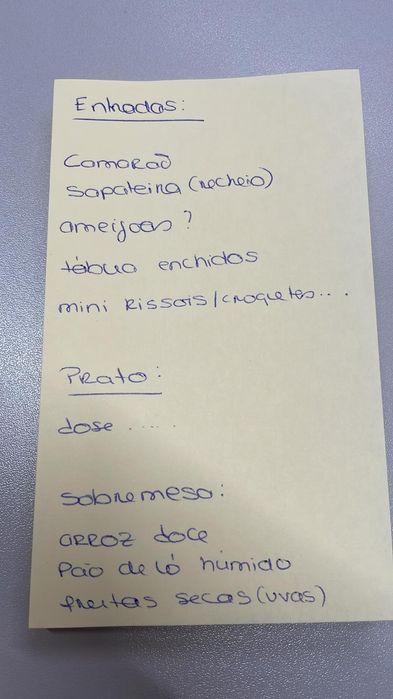 Entradas:
Camarão
Sapateira (recheio)
ameijoas ?
tábua enchidos
mini Rissois/croquetes...
Prato:
dose .....
Sobremesa:
arroz doce
Pão de ló húmido
frutas secas (uvas)